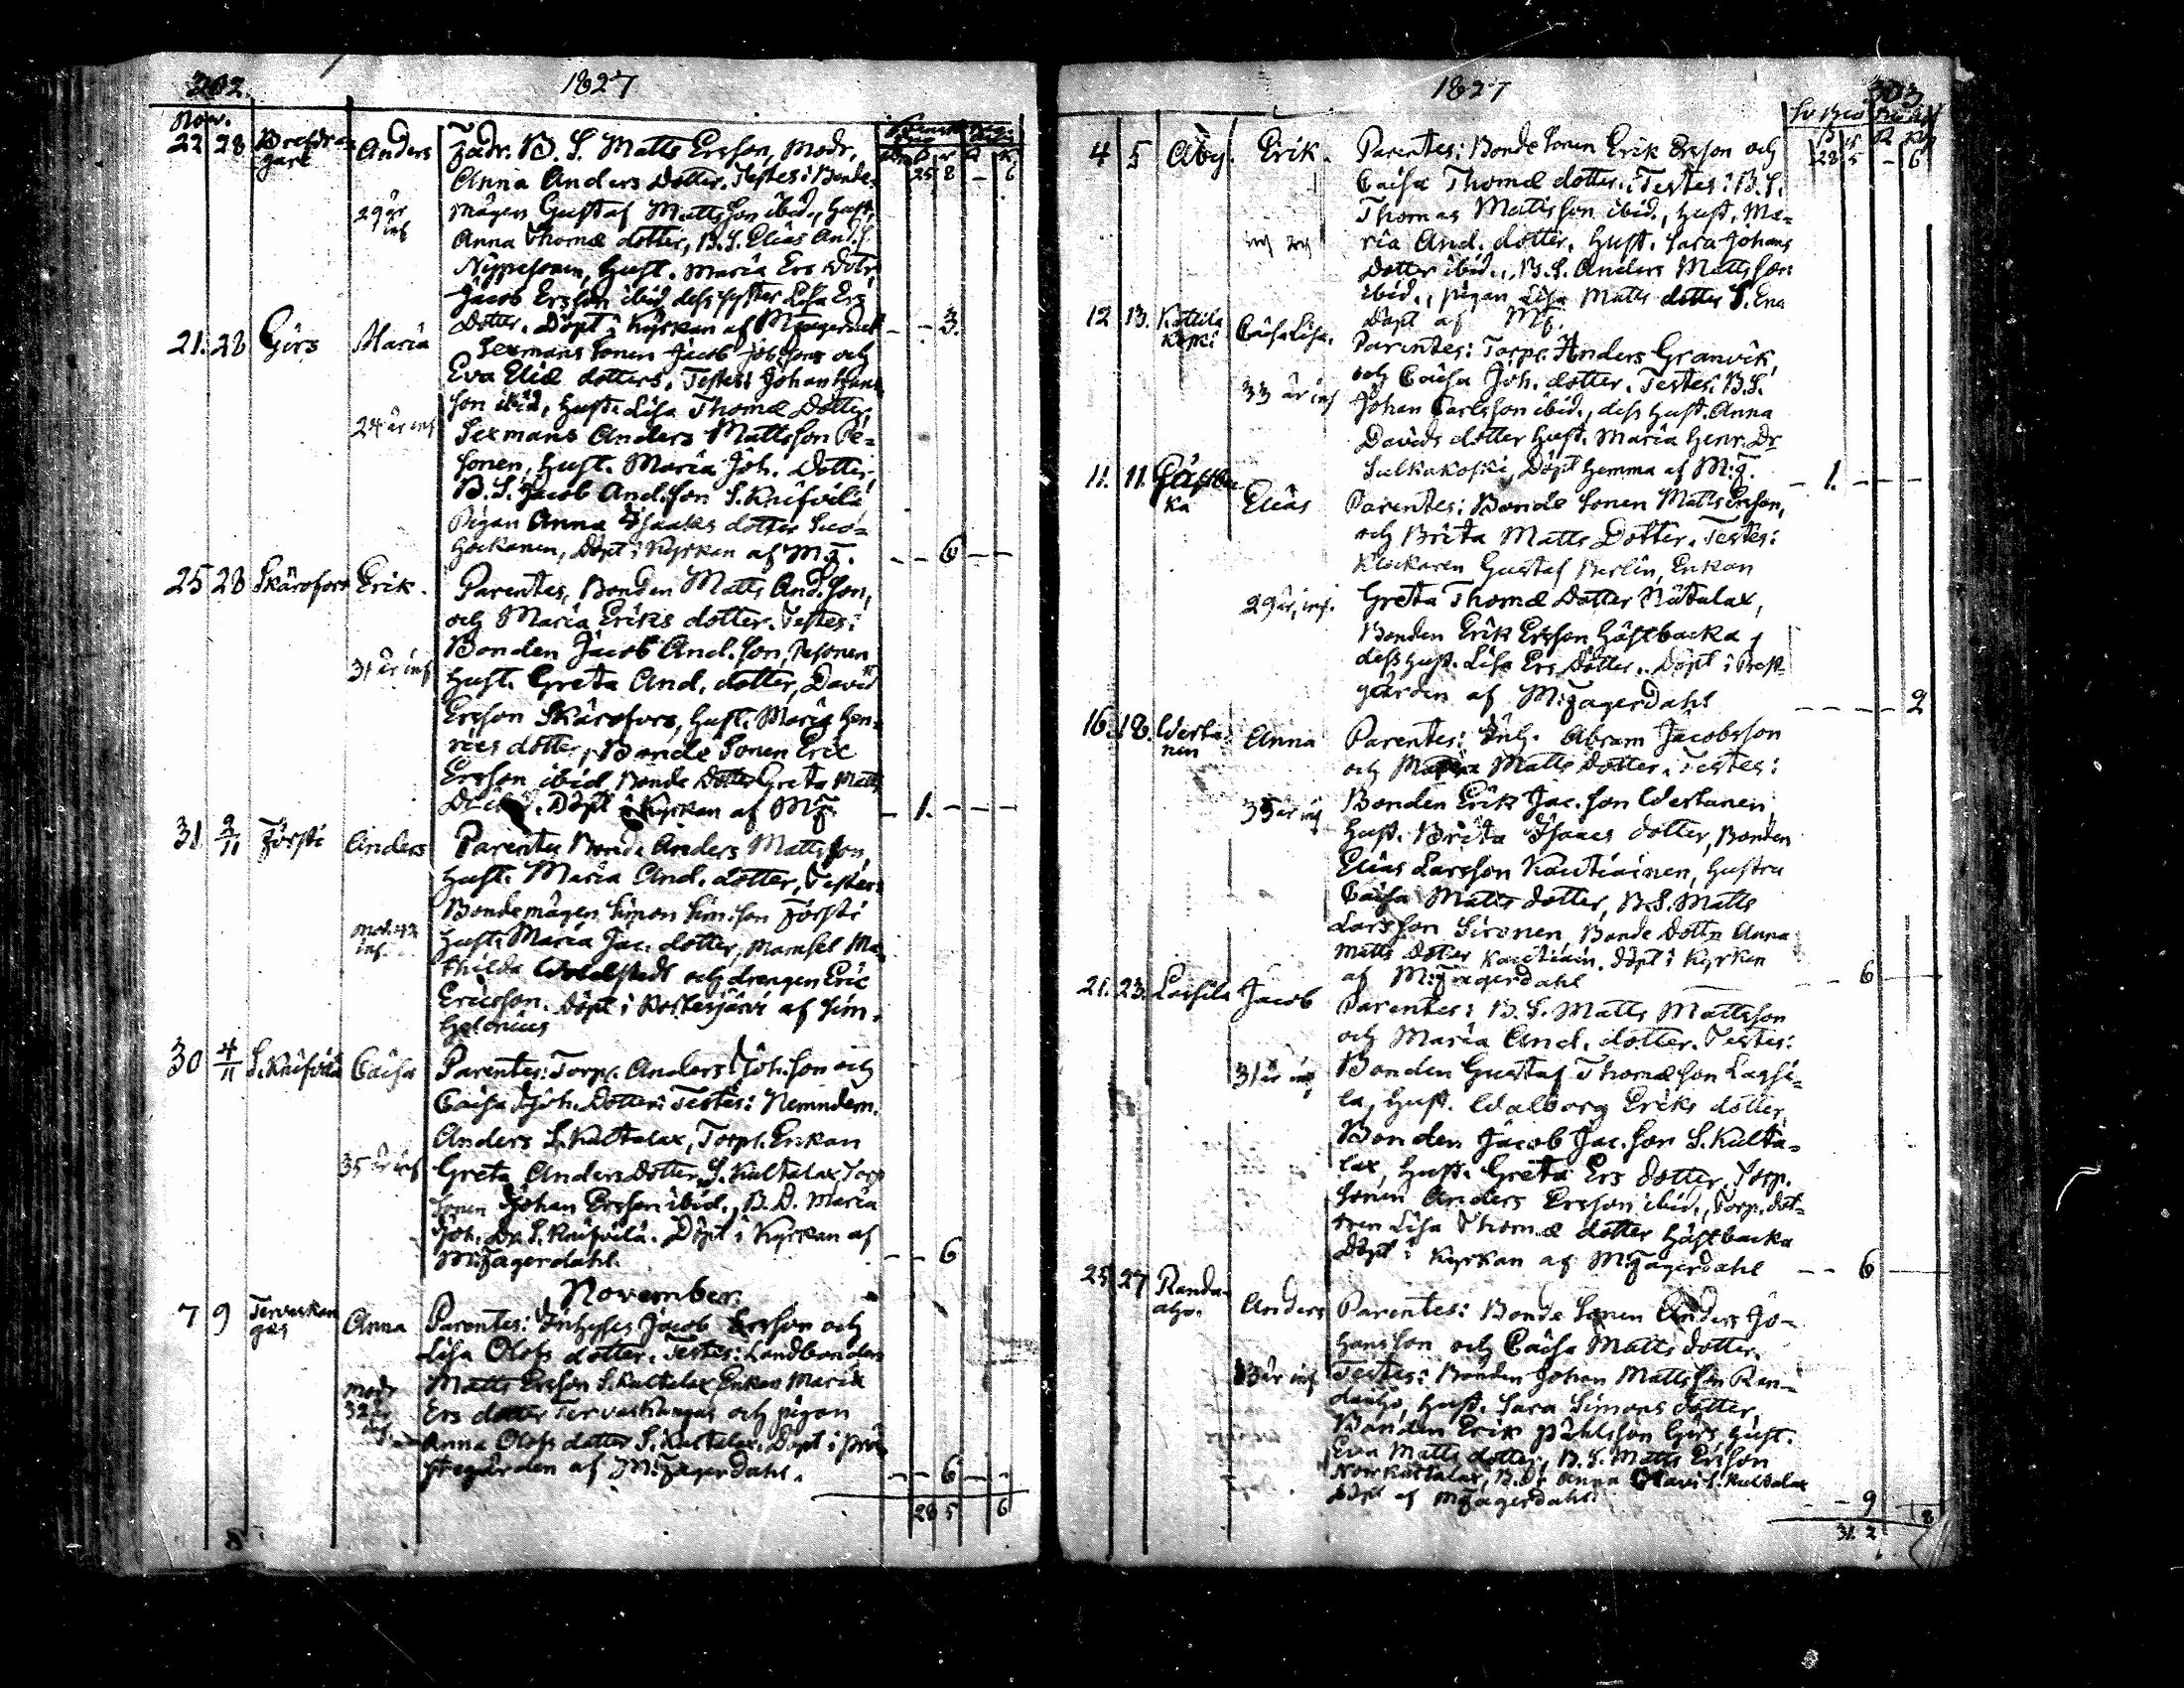 202.
1827
Nov.
22 28 Anders Fadr. B. S. Matts Ersson, Modr,
Anna Anders Dotter. Testes: Bonde
29 år mågen Gustaf Mattsson ibid., Hust.
Anna Thomæ dotter, B. S. Elias And. S.
Hust. Maria Ers Dotr
Jacob Ersson ibid. dess syster Lisa Ers
Dotter. Döpt i Kyrkan af
21. 28 Girs Maria Sexmans Sonen Jacob och
Eva Eliæ dotters. Testes: Johan
son ibid, Hust. Lisa Thomæ Dotter,
24 år Sexmans Anders Mattsson Pe-
sonen, Hust. Maria Joh. Dotter,
B. S. Jacob And.son S. Knifvilä
Pigan Anna Isaaks dotter
Döpt i Kyrkan af M. F. 6
25 28 Skärsfors Erik. Parentes, Bonden Matts And.son,
och Maria Eriks dotter. Testes:
Bonden Jacob And. son Pesonen
31 år Hust. Greta And. dotter, David
Ersson Skärsfors, Hust. Maria Hen-
rics dotter, Bonde Sonen Eric
Ersson ibid Bonde Dotter Greta Matts
Döpt i Kyrkan af M F. 1.
31 2/11 Försti Anders Parentes Bonde Anders Mattsson,
Hust. Maria And. dotter, Testes:
Bondemågen Simon Sim.son Försti
Hust. Maria Jac. dotter, Mamsel Ma-
thilda och drengen Eric
Ericsson. Döpt i af Sim.
30 4/11 S. Knifvilä Caisa Parentes: Torp. Anders Joh.son och
Caisa Joh. Dotter: Testes: Nemndem.
Anders S. Kultalax, Torp. Enkan
35 år Greta Anders Dotter, S. Kultalax Torp
sonen Johan Ersson ibid., B. D. Maria
Joh. Dr S. Knifvilä. Döpt i Kyrkan af
M: Fagerdahl. 6
November.
7 9 Anna Parentes: Inhyses Jacob Ersson och
Lisa Olofs dotter. Testes: Landbonden
Modr Matts Ersson S. Kultalax Enkan Maria
32 år Ers dotter och pigan
Anna Olofs dotter S. Kultalax. Döpt i Prä-
stegården af M: Fagerdahl. 6
28 5 6
8
1827
303
4 5 Åby. Erik. Parentes: Bonde Sonen Erik Ersson och 28 5 - 6
Caisa Thomæ dotter. Testes: B. S.
Thomas Mattsson ibid., Hust. Ma-
ria And. dotter, Hust. Sara Johans
Dotter ibid., B. S. Anders Mattsson
ibid., pigan Lisa Matts dotter
Döpt af MF.
12 13. Kattila koski Caisa Lisa. Parentes: Torpr. Anders Granvik,
och Caisa Joh. dotter. Testes: B. S.
33 år Johan Carlsson ibid., dess Hust. Anna
Davids dotter Hust. Maria Henr. Dr
Sulkakoski, Döpt Hemma af M: F. 1.
11. 11. Elias Parentes: Bonde Sonen Matts Ersson,
och Brita Matts Dotter. Testes:
Klockaren Gustaf Berlin, Enkan
29 år, Greta Thomæ Dotter Nätalax,
Bonden Erik Ersson Hästbacka,
dess Hust. Lisa Ers Dotter. Döpt i Prest-
gården af M: Fagerdahl 2
16. 18. Westa- nen Anna Parentes: Inh. Abram Jacobsson
och Maria Matts Dotter. Testes:
35 år Bonden Erik Jac. son Westanen
Hust. Brita Isaacs dotter, Bonden
Elias Larsson Kautiainen, Hustru
Caisa Matts dotter, B. S. Matts
Larsson Sironen, Bonde Dottr Anna
Matts Dotter. Döpt i Kyrkan
af M: Fagerdahl 6
21. 23. Lassila Jacob Parentes: B. S. Matts Mattsson
och Maria And. dotter. Testes:
31 år Bonden Gustaf Thomæson Lassi-
la, Hust. Walborg Eriks dotter,
Bonden Jacob Jac. son S. Kulta-
lax, Hust. Greta Ers dotter, Torp.
sonen Anders Ersson ibid., Torp. dot-
tren Lisa Thomæ dotter Hästbacka
Döpt i Kyrkan af M: Fagerdahl 6
25 27 Randa- aho. Anders Parentes: Bonde Sonen Anders Jo-
hansson och Caisa Matts dotter.
33 år Testes: Bonden Johan Mattsson Ran-
daaho, Hust. Sara Simons dotter,
Bonden Erik Påhlsson Girs, Hust.
Eva Matts dotter, B. S. Matts Ersson
Norr Kultalax, B. Dr Anna S. Kultalax
Döpt af M: Fagerdahl. 9
31. 2 8